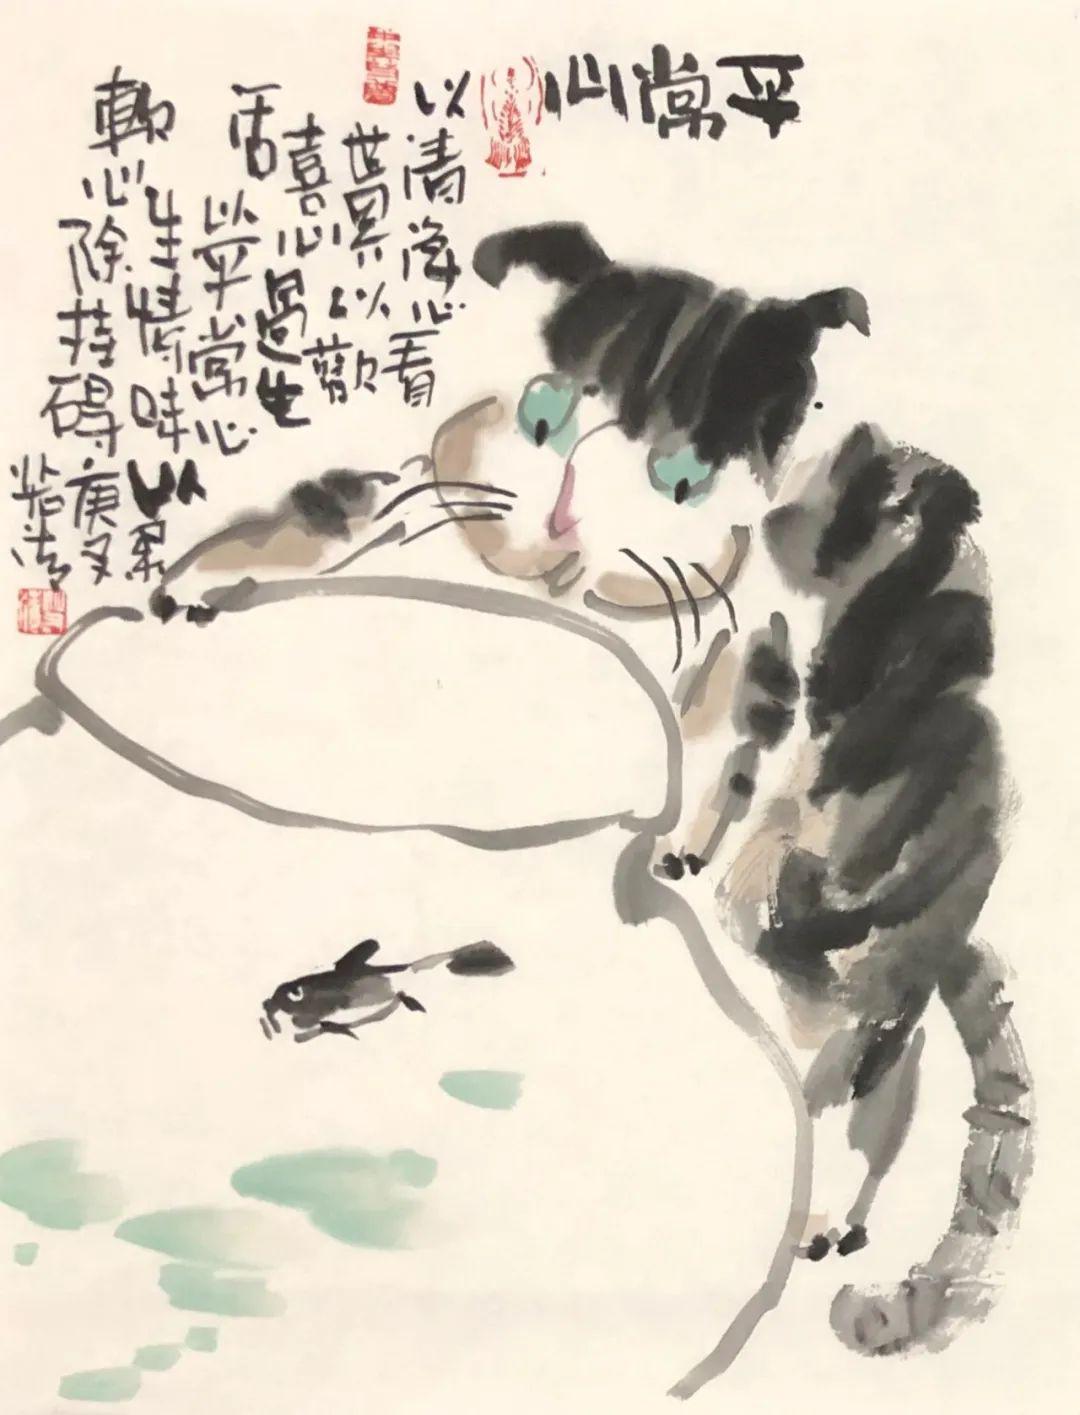 平常心
以清淨心看
世界以歡
喜心過生
活以平常心
生情味以柔
軟心除挂碍庚